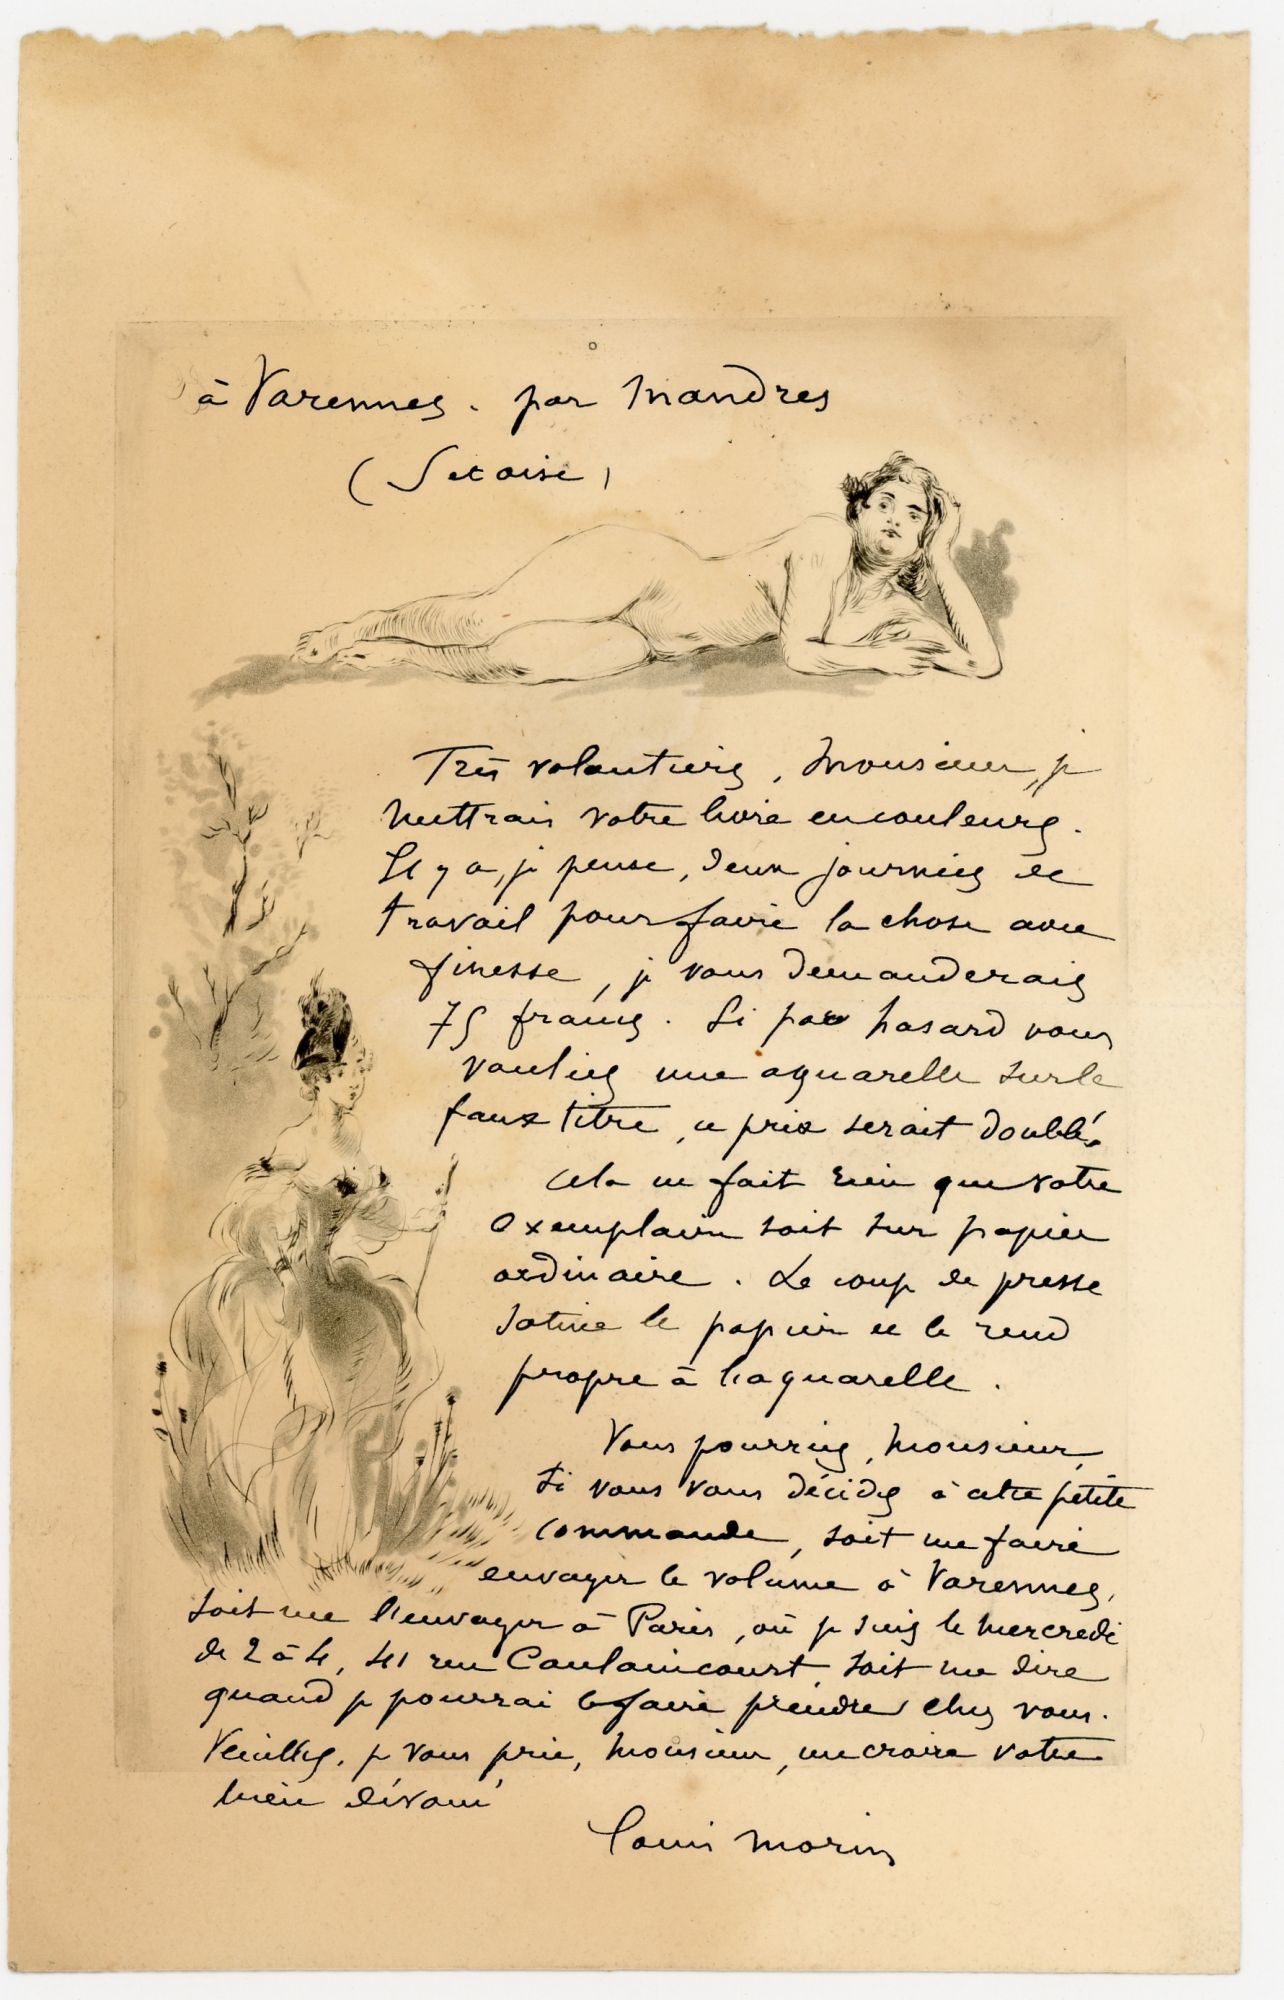 à Varennes. par Mandres
(Setoise)
Très volontiers, Monsieur, je
mettrais votre livre en couleurs.
Il y a, je pense, deux journées de
travail pour faire la chose avec
finesse, je vous demanderais
75 francs. Si par hasard vous
vouliez une aquarelle sur le
faux titre, ce prix serait doublé.
Cela ne fait rien que votre
exemplaire soit sur papier
ordinaire. Le coup de presse
satine le papier et le rend
propre à l'aquarelle.
Vous pourriez, monsieur,
si vous vous décidez à cette petite
commande, soit me faire
envoyer le volume à Varennes,
soit me l'envoyer à Paris, où je suis le mercredi
de 2 à 4, 41 rue Caulaincourt, soit me dire
quand je pourrai le faire prendre chez vous.
Veuillez, je vous prie, monsieur, me croire votre
bien dévoué
Louis Morin